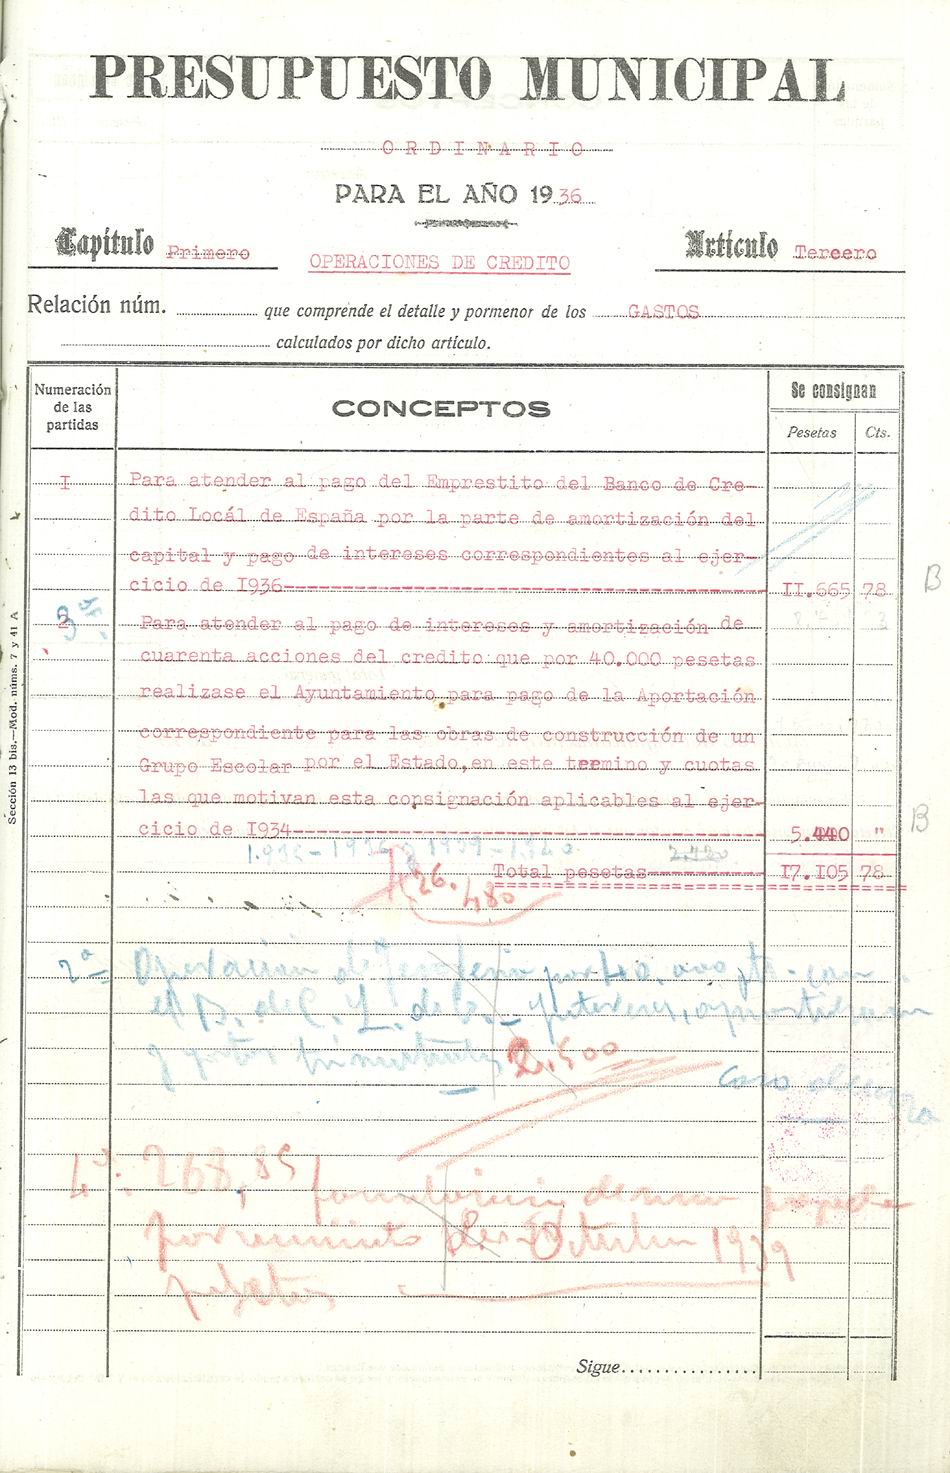 PRESUPUESTO MUNICIPAL
ORDINARIO
PARA EL AÑO 1936
Capítulo Primero
Artículo Tercero
OPERACIONES DE CREDITO
Relación núm. que comprende el detalle y pormenor de los GASTOS
calculados por dicho artículo.
Numeración de las partidas
CONCEPTOS
Se consignan
Pesetas Cts.
I Para atender al pago del Emprestito del Banco de Cre-
dito Locál de España por la parte de amortización del
capital y pago de intereses correspondientes al ejer-
cicio de I936 II.665 78
B
3ª
Para atender al pago de intereses y amortización de
cuarenta acciones del credito que por 40.000 pesetas
realizase el Ayuntamiento para pago de la Aportación
correspondiente para las obras de construcción de un
Grupo Escolar por el Estado,en este termino y cuotas
las que motivan esta consignación aplicables al ejer-
cicio de I934 5.440 "
B
Total pesetas I7.I05 78
26.480
2ª Operación de Tesoreria por 40,000 pts. con
el B. de C. L. de E.
2.500
4ª. 268,85
Octubre 1939
Sigue
Sección 13 bis.—Mod. núms. 7 y 41 A